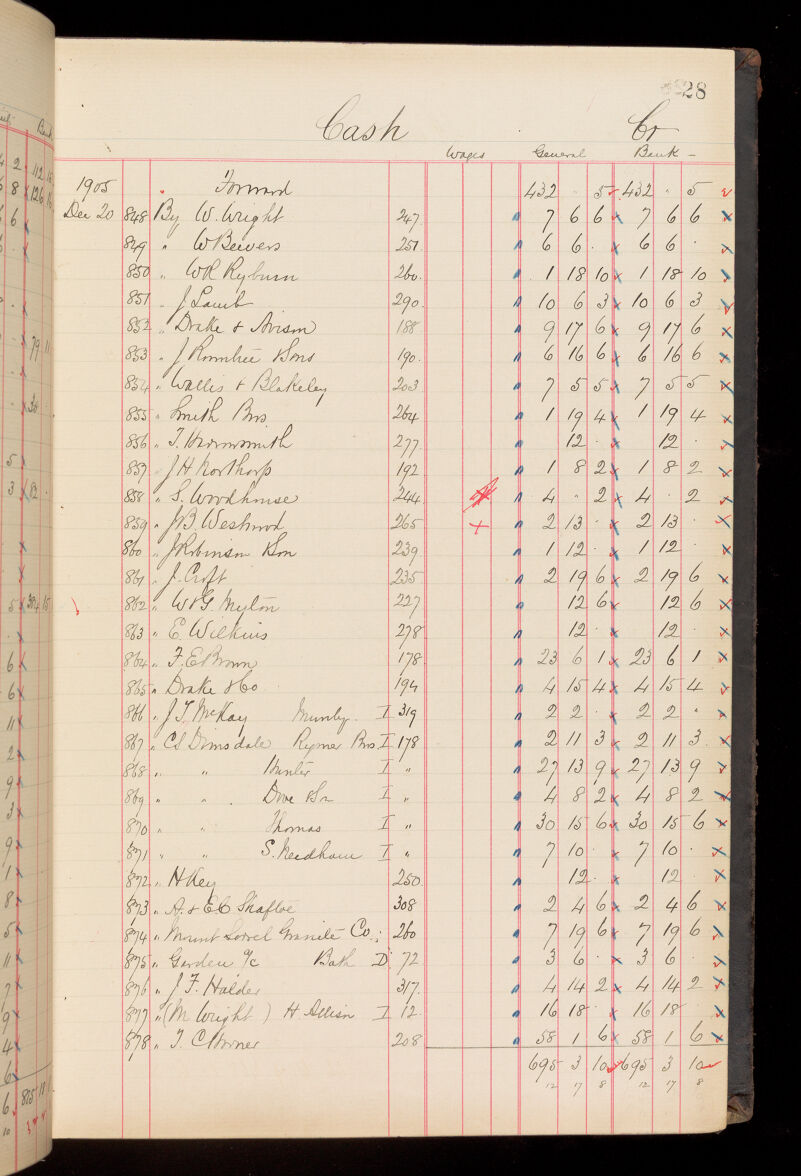 28
Cash Cr
Wages General Bank -
1905 Forward 432 " 5 432 " 5
Dec 20 848 By W. Wright 247 7 6 6 7 6 6
849 " W Beevers 251 6 6 . 6 6 .
850 " W R Ryburn 260 1 18 10 1 18 10
851 " J Lamb 290 10 6 3 10 6 3
852 " Drake & Avison 188 9 17 6 9 17 6
853 " J Rowntree & Sons 190 6 16 6 6 16 6
854 " Wallis & Blakeley 203 7 5 5 7 5 5
855 " Smith Bros 264 1 19 4 1 19 4
856 " T. 277 12 . 12 .
857 " J H Northorp 192 1 8 2 1 8 2
858 " S. Woodhouse 244 4 " 2 4 . 2
859 " J B. Westwood 265 2 13 . 2 13 .
860 " J Robinson & Son 239 1 12 . 1 12 .
861 " J. Croft 235 2 19 6 2 19 6
862 " W & G. Mylton 227 12 6 12 6
863 " E. Wilkins 278 12 . 12 .
864 " F. E Brown 178 23 6 1 23 6 1
865 " Drake & Co 194 4 15 4 4 15 4
866 " J T. McKay Munby. I 319 2 2 . 2 2 "
867 " CS Dimsdale Rymer Bros I 178 2 11 3 2 11 3
868 " " Hunter I " 27 13 9 27 13 9
869 " " . Dove & Sn I " 4 8 2 4 8 2
870 " " Thomas I " 30 15 6 30 15 6
871 " " S. Needham I " 7 10 . 7 10 .
872 " H Key 250 12 . 12 .
873 " A. & E C Shaftoe 308 2 4 6 2 4 6
874 " Mount Sorrel Granite Co. 260 7 19 6 7 19 6
875 " Garden a/c Bath D 72 3 6 . 3 6 .
876 " J. F. Halder 317 4 14 2 4 14 2
877 " (M Wright) H. Allison I 12 16 18 . 16 18
878 " T. C 208 58 1 6 58 1 6
695 3 10 695 3 10
12 7 8 12 17 8